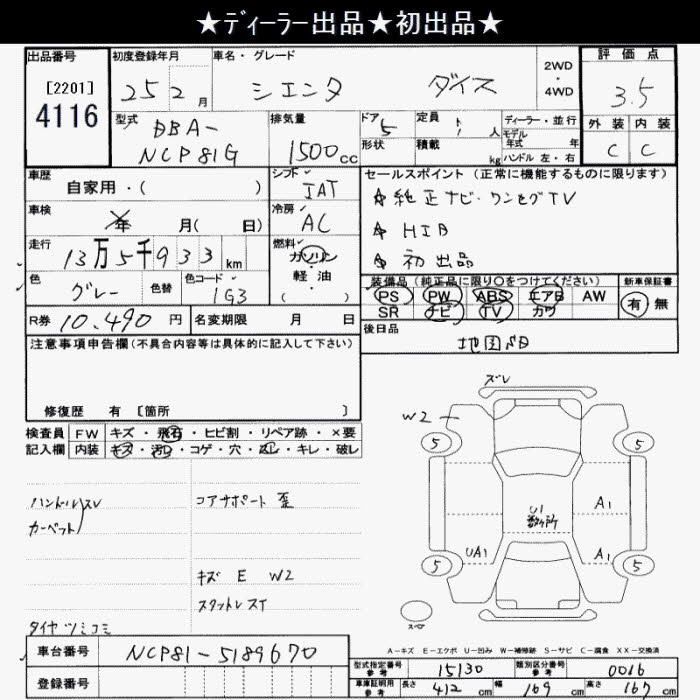 ★ディーラー出品★初出品★
出品番号 初度登録年月 車名・グレード 2WD ・ 4WD 評価点
[2201] 4116 25 2月 シエンタ ダイス 3.5
型式 DBA- NCP81G 排気量 1500cc ドア 5 定員 人 ディーラー・並行 外装 内装
形状 積載 kg モデル年式 年 ハンドル 左・右 C C
車歴 自家用・( ) シフト IAT セールスポイント(正常に機能するものに限ります)
車検 年 月( 日) 冷房 AC ☆純正ナビ・ワンセグTV
☆HID
☆初出品
走行 13万5千933km 燃料 ガソリン・軽油・( )
色 グレー 色替 色コード 1G3
装備品(純正品に限り○をつけてください) 新車保証書
PS PW ABS エアB AW 有・無
SR ナビ TV カワ
R券 10.490円 名変期限 月 日 後日品
注意事項申告欄(不具合内容等は具体的に記入して下さい)
修復歴 有 [箇所 ]
検査員 FW キズ・飛石・ヒビ割・リペア跡・×要
記入欄 内装 キズ・汚れ・コゲ・穴・スレ・キレ・破レ
ズレ
W2
5 5
ハンドルスレ コアサポート 歪
カーペット
U1 数ヶ所
A1
UA1 A1
5 5
キズ E W2
スタットレスT
タイヤツミコミ
スペア
A-キズ E-エクボ U-凹み W-補修跡 S-サビ C-腐食 XX-交換済
車台番号 NCP81-5189670
型式指定番号 参考 15130 類別区分番号 参考 0016
登録番号
車庫証明用 参考 長さ 412cm 幅 169cm 高さ 167cm